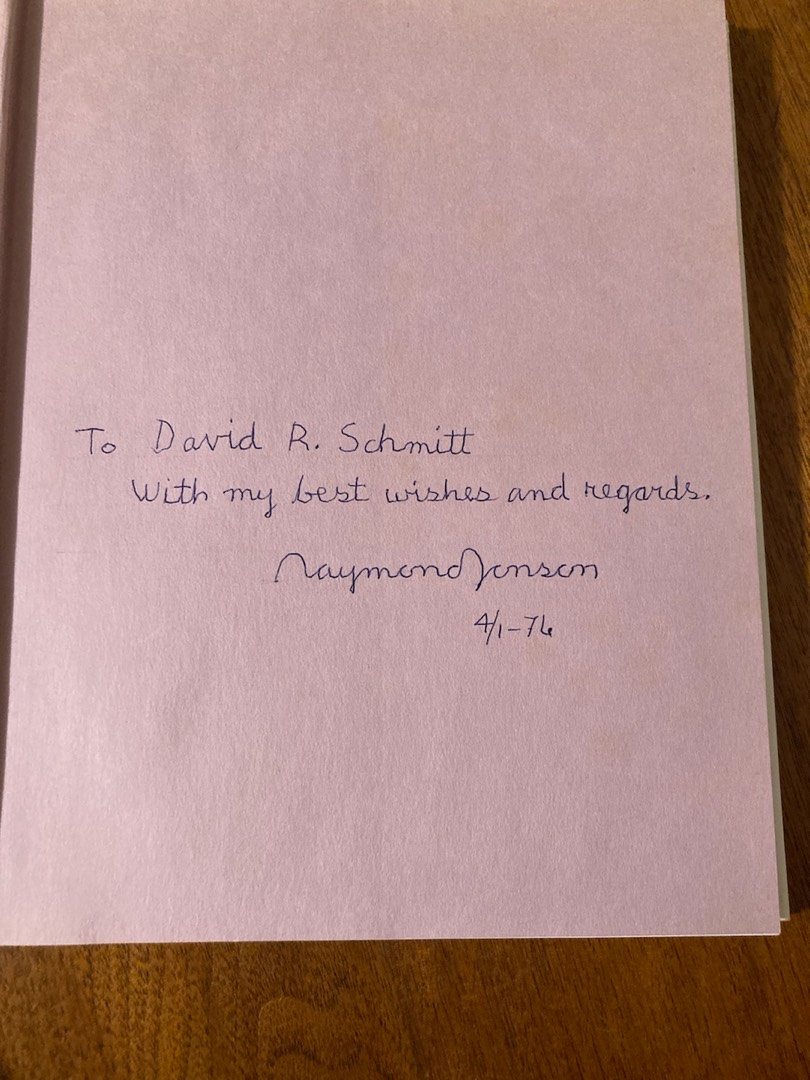 To David R. Schmitt
With my best wishes and regards.
Raymond Jonson
4/1-76